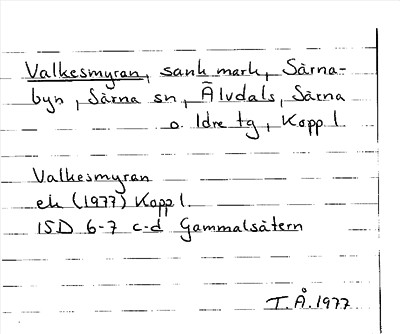 Valkesmyran, sank mark, Särna-
byn, Särna sn, Älvdals, Särna
o. Idre tg, Kopp l
Valkesmyran
ek (1977) Kopp l.
15D 6-7 c-d Gammalsätern
T.Å.1977